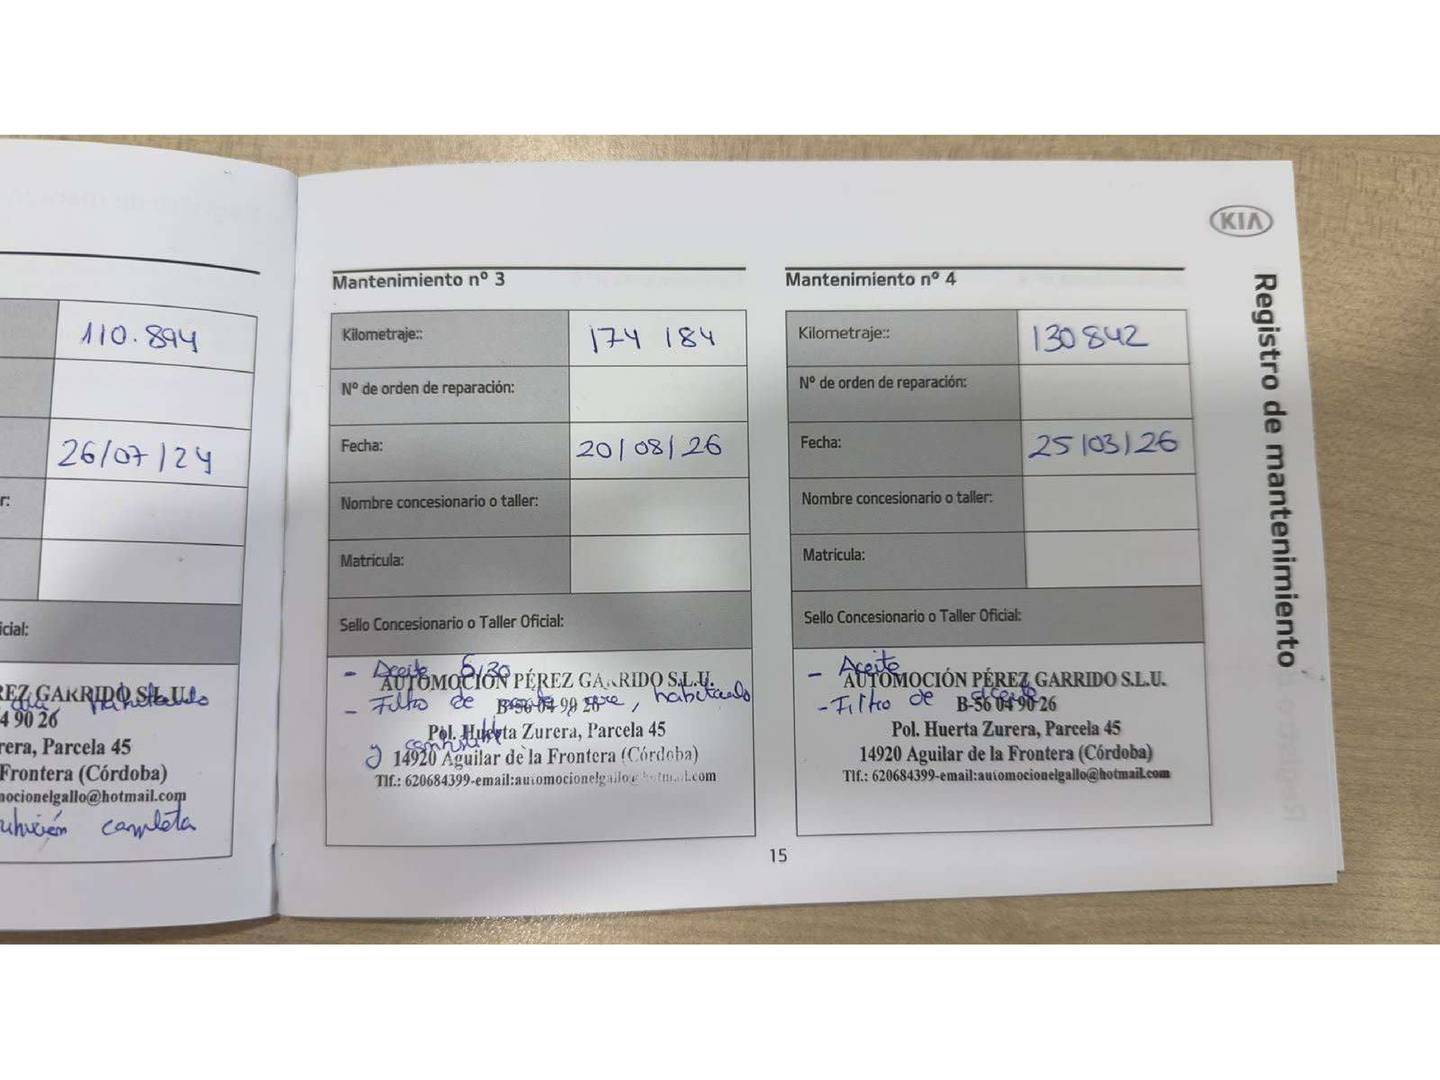 110.894
26/07/24
r:
icial:
REZ GARRIDO S.L.U.
habitaculo
4 90 26
rera, Parcela 45
Frontera (Córdoba)
mocionelgallo@hotmail.com
completa
Mantenimiento nº 3
Kilometraje::
174 184
Nº de orden de reparación:
Fecha:
20/08/26
Nombre concesionario o taller:
Matrícula:
Sello Concesionario o Taller Oficial:
- Aceite 5/30
AUTOMOCIÓN PÉREZ GARRIDO S.L.U.
- Filtro de aceite, aire, habitaculo
B-56 04 90 26
Pol. Huerta Zurera, Parcela 45
y combustible
14920 Aguilar de la Frontera (Córdoba)
Tlf.: 620684399-email:automocionelgallo@hotmail.com
15
Mantenimiento nº 4
Kilometraje::
130842
Nº de orden de reparación:
Fecha:
25/03/26
Nombre concesionario o taller:
Matrícula:
Sello Concesionario o Taller Oficial:
- Aceite
AUTOMOCIÓN PÉREZ GARRIDO S.L.U.
- Filtro de aceite
B-56 04 90 26
Pol. Huerta Zurera, Parcela 45
14920 Aguilar de la Frontera (Córdoba)
Tlf.: 620684399-email:automocionelgallo@hotmail.com
KIA
Registro de mantenimiento